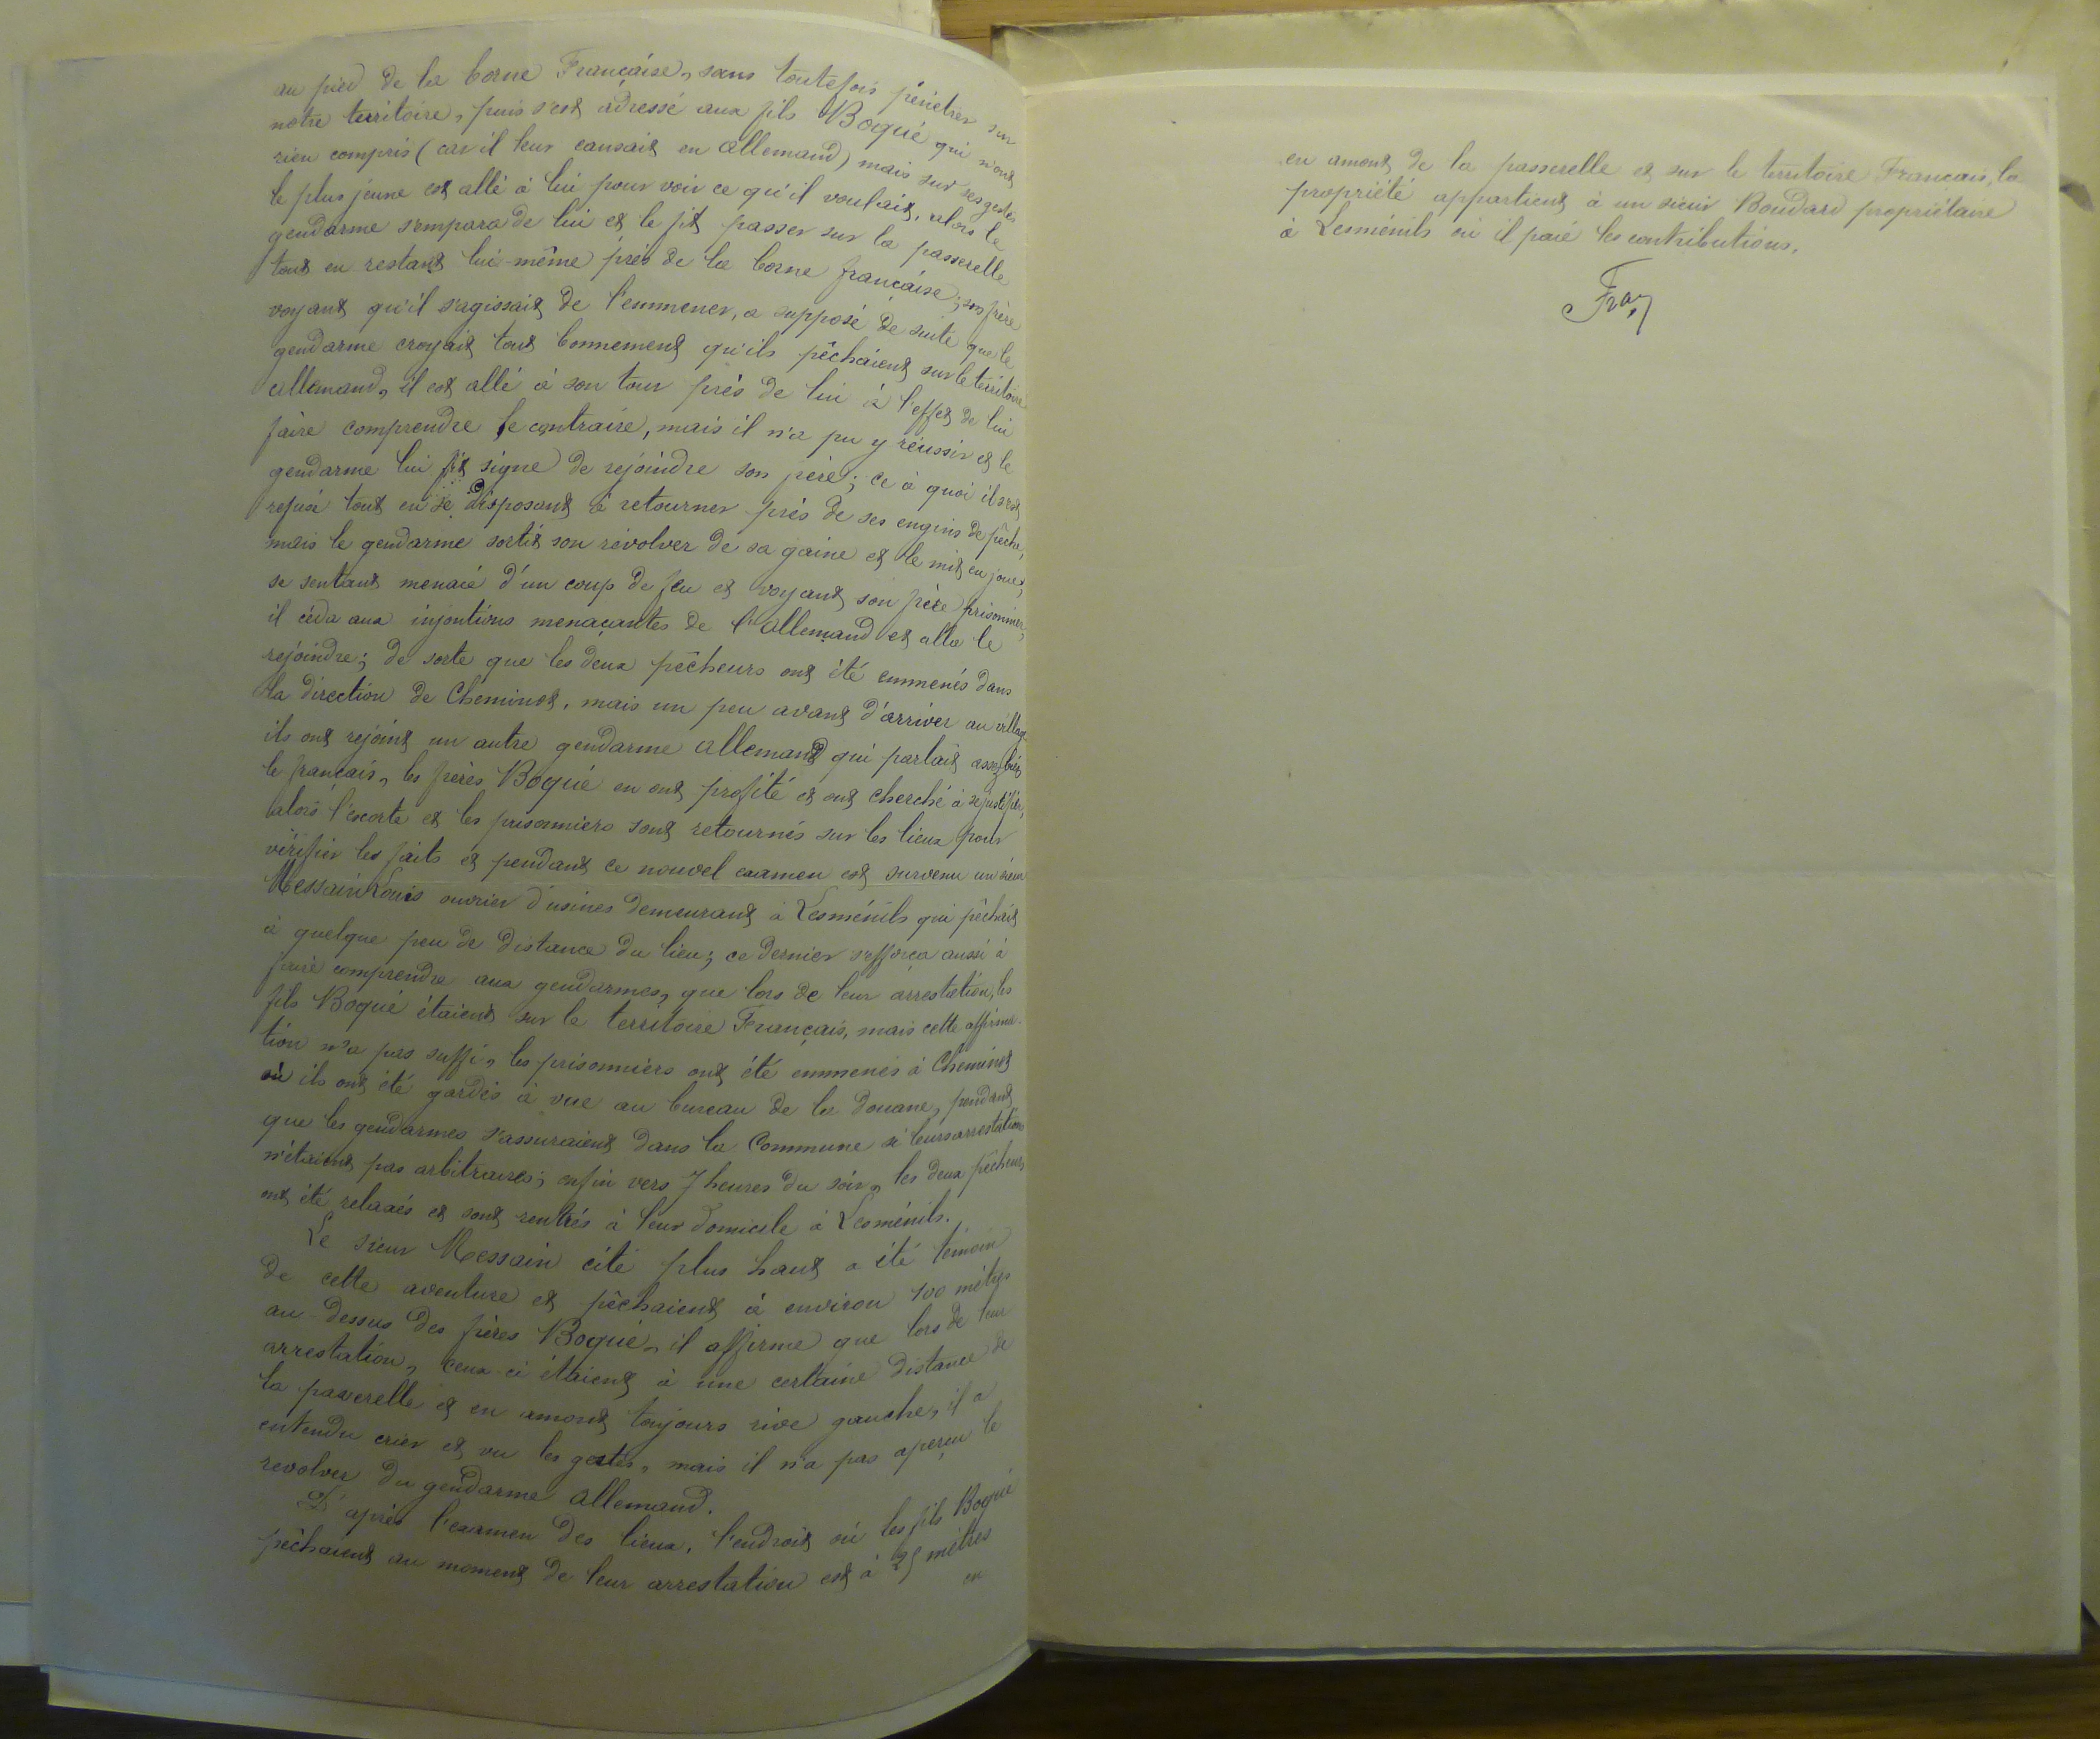 au pied de la borne Française, sans toutefois pénétrer sur
notre territoire, puis s'est adressé aux fils Boqué qui n'ont
rien compris (car il leur causait en allemand) mais sur ses gestes
le plus jeune est allé à lui pour voir ce qu'il voulait, alors le
gendarme s'empara de lui et le fit passer sur la passerelle
tout en restant lui-même près de la borne française; son frère
voyant qu'il s'agissait de l'emmener, a supposé de suite que le
gendarme croyait tout bonnement qu'ils pêchaient sur le territoire
allemand, il est allé à son tour près de lui à l'effet de lui
faire comprendre le contraire, mais il n'a pu y réussir et le
gendarme lui fit signe de rejoindre son frère; ce à quoi il s'est
refusé tout en se disposant à retourner près de ses engins de pêche,
mais le gendarme sortit son révolver de sa gaine et le mit en joue;
se sentant menacé d'un coup de feu et voyant son frère prisonnier,
il céda aux injontions menaçantes de l'allemand et alla le
rejoindre; de sorte que les deux pêcheurs ont été emmenés dans
la direction de Cheminot, mais un peu avant d'arriver au village
ils ont rejoint un autre gendarme allemand qui parlait assez bien
le français, les frères Boqué en ont profité et ont cherché à se justifier,
alors l'escorte et les prisonniers sont retournés sur les lieux pour
vérifier les faits et pendant ce nouvel examen est survenu un sieur
Messain Louis ouvrier d'usines demeurant à Lesménils qui pêchait
à quelque peu de distance du lieu; ce dernier s'efforça aussi à
faire comprendre aux gendarmes, que lors de leur arrestation, les
fils Boqué étaient sur le territoire Français, mais cette affirma-
tion n'a pas suffi, les prisonniers ont été emmenés à Cheminot
où ils ont été gardés à vue au bureau de la douane, pendant
que les gendarmes s'assuraient dans la Commune si leurs arrestations
n'étaient pas arbitraires; enfin vers 7 heures du soir, les deux pêcheurs
ont été relaxés et sont rentrés à leur domicile à Lesménils.
Le sieur Messain cité plus haut a été témoin
de cette aventure et pêchaient à environ 100 mètres
au-dessus des frères Boqué, il affirme que lors de leur
arrestation, ceux-ci étaient à une certaine distance de
la passerelle et en amont toujours rive gauche, il a
entendu crier et vu les gestes, mais il n'a pas aperçu le
revolver du gendarme allemand.
D'après l'examen des lieux, l'endroit où les fils Boqué
pêchaient au moment de leur arrestation est à 25 mètres
en
en amont de la passerelle et sur le territoire Français, la
propriété appartient à un sieur Boudard propriétaire
à Lesménils où il paie les contributions.